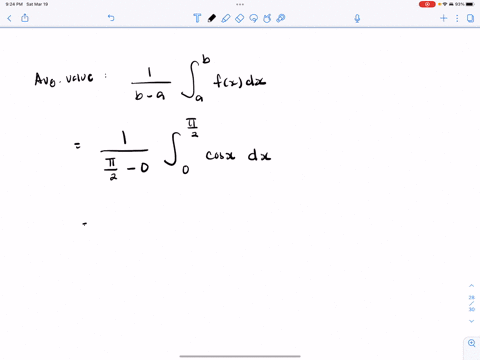 9:24 PM Sat Mar 19
93%
Ave. value : 1/(b-a) ∫_a^b f(x) dx
= 1/(π/2 - 0) ∫_0^(π/2) cosx dx
=
28
/
30